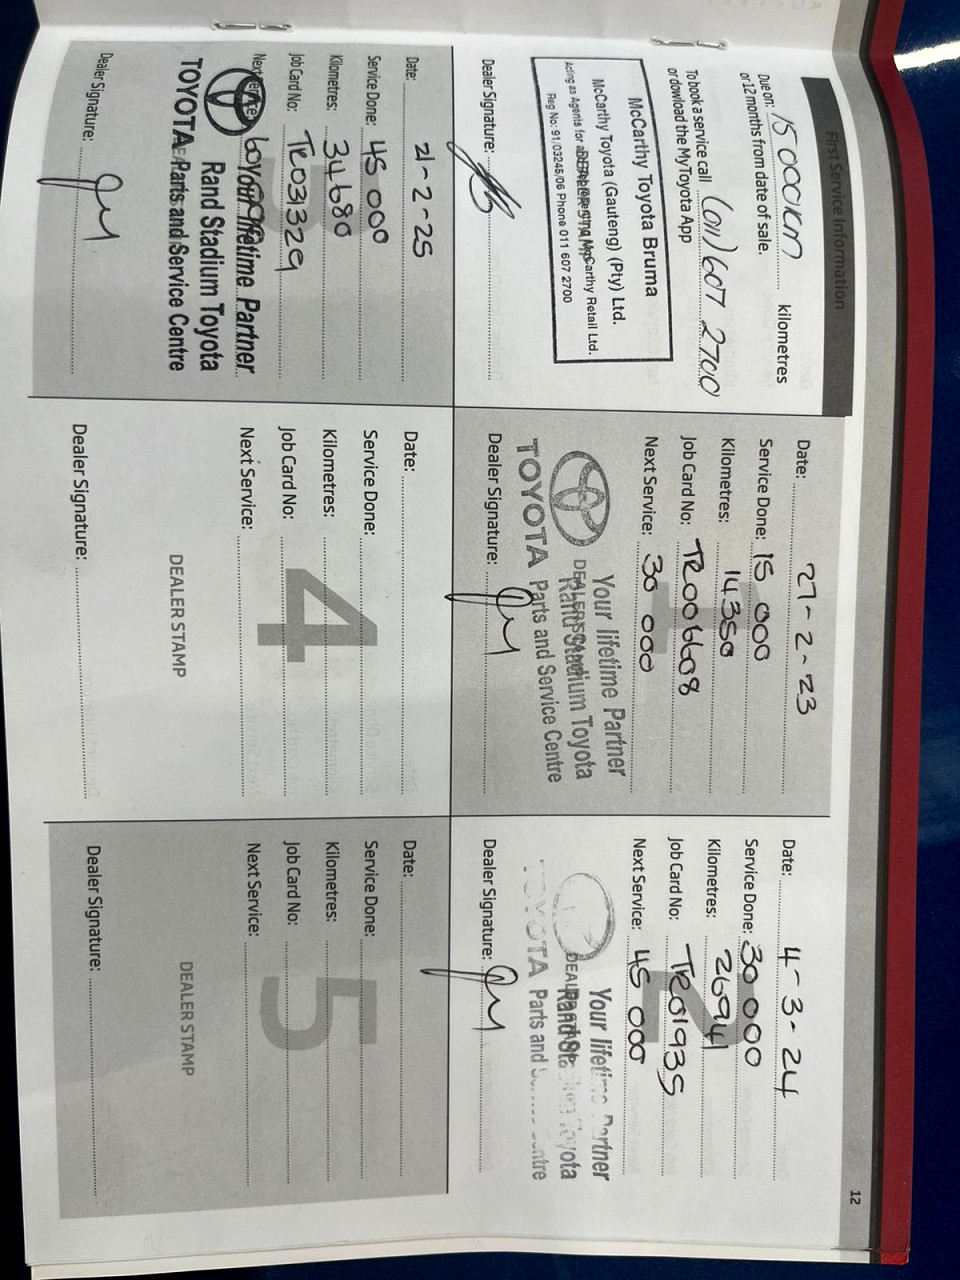 12
First Service Information
Due on: 15 000KM kilometres
or 12 months from date of sale.
To book a service call (011) 607 2700
or dowload the MyToyota App
McCarthy Toyota Bruma
McCarthy Toyota (Gauteng) (Pty) Ltd.
Acting as Agents for McCarthy Retail Ltd.
Reg No: 91/03245/06 Phone 011 607 2700
Dealer Signature:
Date: 27-2-23
Service Done: 15 000
Kilometres: 14350
Job Card No: TR006608
Next Service: 30 000
Your lifetime Partner
Rand Stadium Toyota
TOYOTA Parts and Service Centre
Dealer Signature:
Date: 4-3-24
Service Done: 30 000
Kilometres: 26941
Job Card No: TR01935
Next Service: 45 000
Your lifetime Partner
TOYOTA Parts and
Dealer Signature:
Date: 21-2-25
Service Done: 45 000
Kilometres: 34680
Job Card No: TR031329
Next Service:
Your lifetime Partner
Rand Stadium Toyota
TOYOTA Parts and Service Centre
Dealer Signature:
4
Date:
Service Done:
Kilometres:
Job Card No:
Next Service:
DEALER STAMP
Dealer Signature:
5
Date:
Service Done:
Kilometres:
Job Card No:
Next Service:
DEALER STAMP
Dealer Signature: